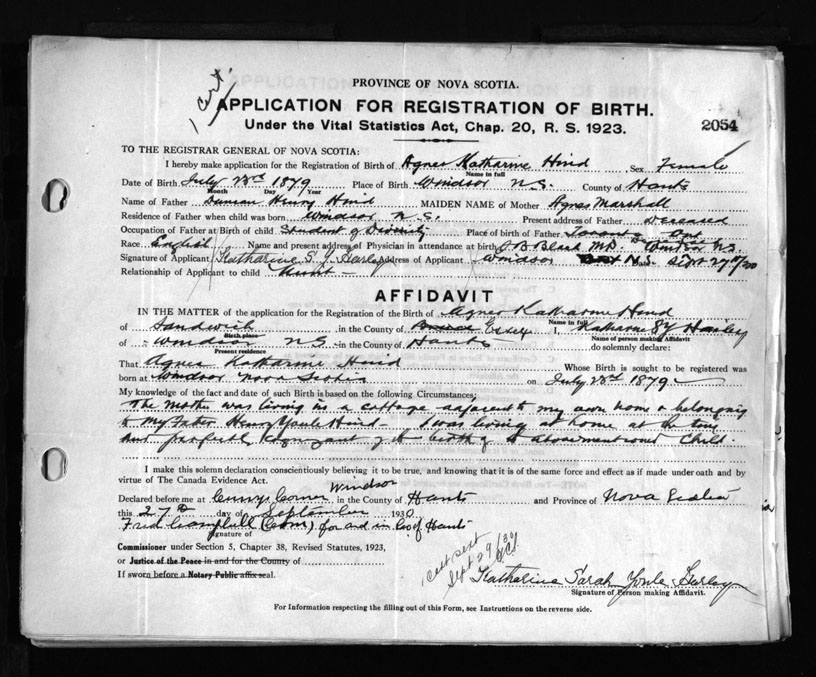 1 cert.
PROVINCE OF NOVA SCOTIA.
APPLICATION FOR REGISTRATION OF BIRTH.
Under the Vital Statistics Act, Chap. 20, R. S. 1923.
2054
TO THE REGISTRAR GENERAL OF NOVA SCOTIA:
I hereby make application for the Registration of Birth of Agnes Katharine Hind Sex Female
Name in full
Date of Birth July 1879 Place of Birth Windsor N.S. County of Hants
Month Day Year
Name of Father Duncan Henry Hind MAIDEN NAME of Mother Agnes Marshall
Residence of Father when child was born Windsor N.S. Present address of Father Deceased
Occupation of Father at Birth of child Student of Divinity Place of birth of Father Toronto Ont
Race English Name and present address of Physician in attendance at birth Black M.D. Windsor N.S.
Signature of Applicant Katharine S. Y. Harley Address of Applicant Windsor N.S. Date Sept 27th/30
Relationship of Applicant to child Aunt
AFFIDAVIT
IN THE MATTER of the application for the Registration of the Birth of Agnes Katharine Hind
Name in full
of Sandwich in the County of Essex I, Katharine S Y Harley
Birth place Name of person making Affidavit
of Windsor N S in the County of Hants do solemnly declare:
Present residence
That Agnes Katharine Hind Whose Birth is sought to be registered was
born at Windsor Nova Scotia on July 1879
My knowledge of the fact and date of such Birth is based on the following Circumstances:
The Mother was living in a cottage adjacent to my own home & belonging
to my Father Henry Youle Hind - I was living at home at the time
and perfectly cognizant of the birth of the abovementioned child.
I make this solemn declaration conscientiously believing it to be true, and knowing that it is of the same force and effect as if made under oath and by
virtue of The Canada Evidence Act.
Windsor
Declared before me at Currys Corner in the County of Hants and Province of Nova Scotia
this 27th day of September 1930
Fred Campbell (Com) for and in Co of Hants
Signature of
Commissioner under Section 5, Chapter 38, Revised Statutes, 1923,
or Justice of the Peace in and for the County of
If sworn before a Notary Public affix seal.
Cert sent
Sept 29/30
Katharine Sarah Youle Harley
Signature of Person making Affidavit.
For Information respecting the filling out of this Form, see Instructions on the reverse side.